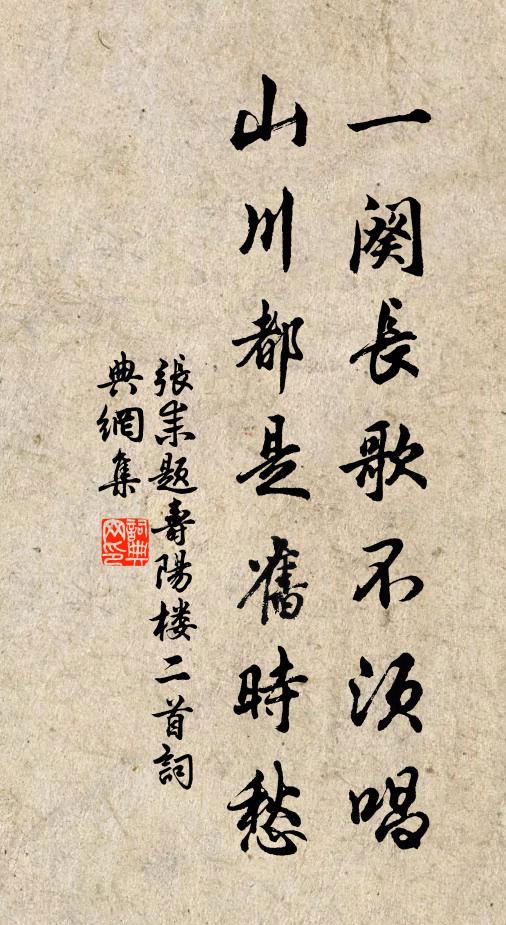 一阕長歌不須唱
山川都是舊時愁
張耒題壽陽楼二首詞
典網集
詞典
网印